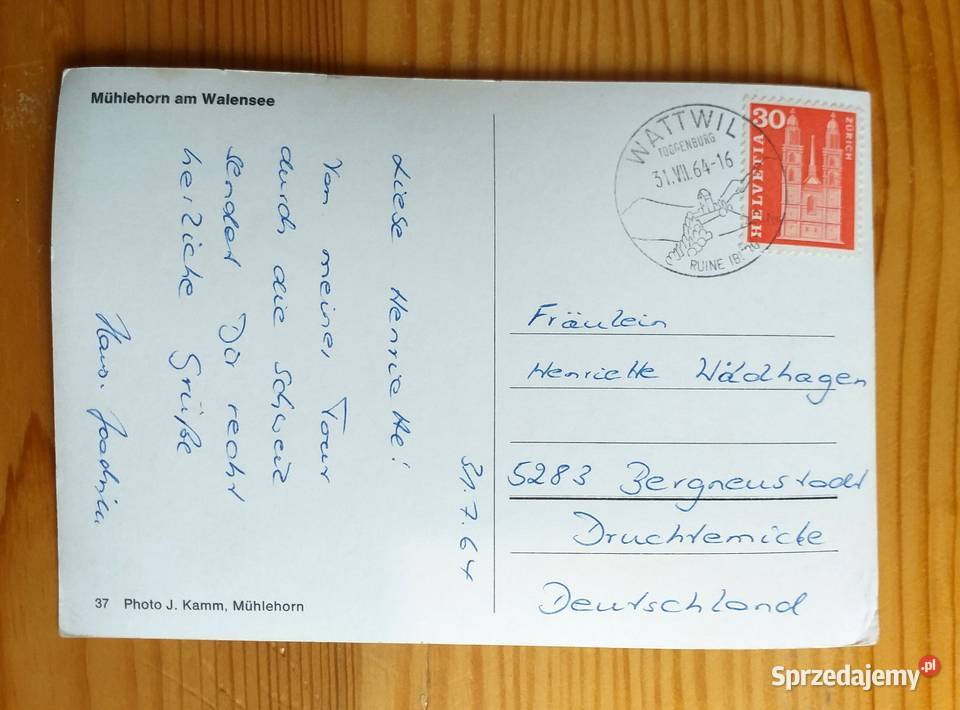 Mühlehorn am Walensee
31.7.64
Liebe Henriette!
Von meiner Tour
durch die Schweiz
sendet Dir recht
herzliche Grüße
Hans-Joachim
37 Photo J. Kamm, Mühlehorn
WATTWIL
TOGGENBURG
31.VII.64-16
RUINE IB
30
ZÜRICH
HELVETIA
Fräulein
Henriette Wäldhagen
5283 Bergneustadt
Druchtemicke
Deutschland
Sprzedajemy.pl